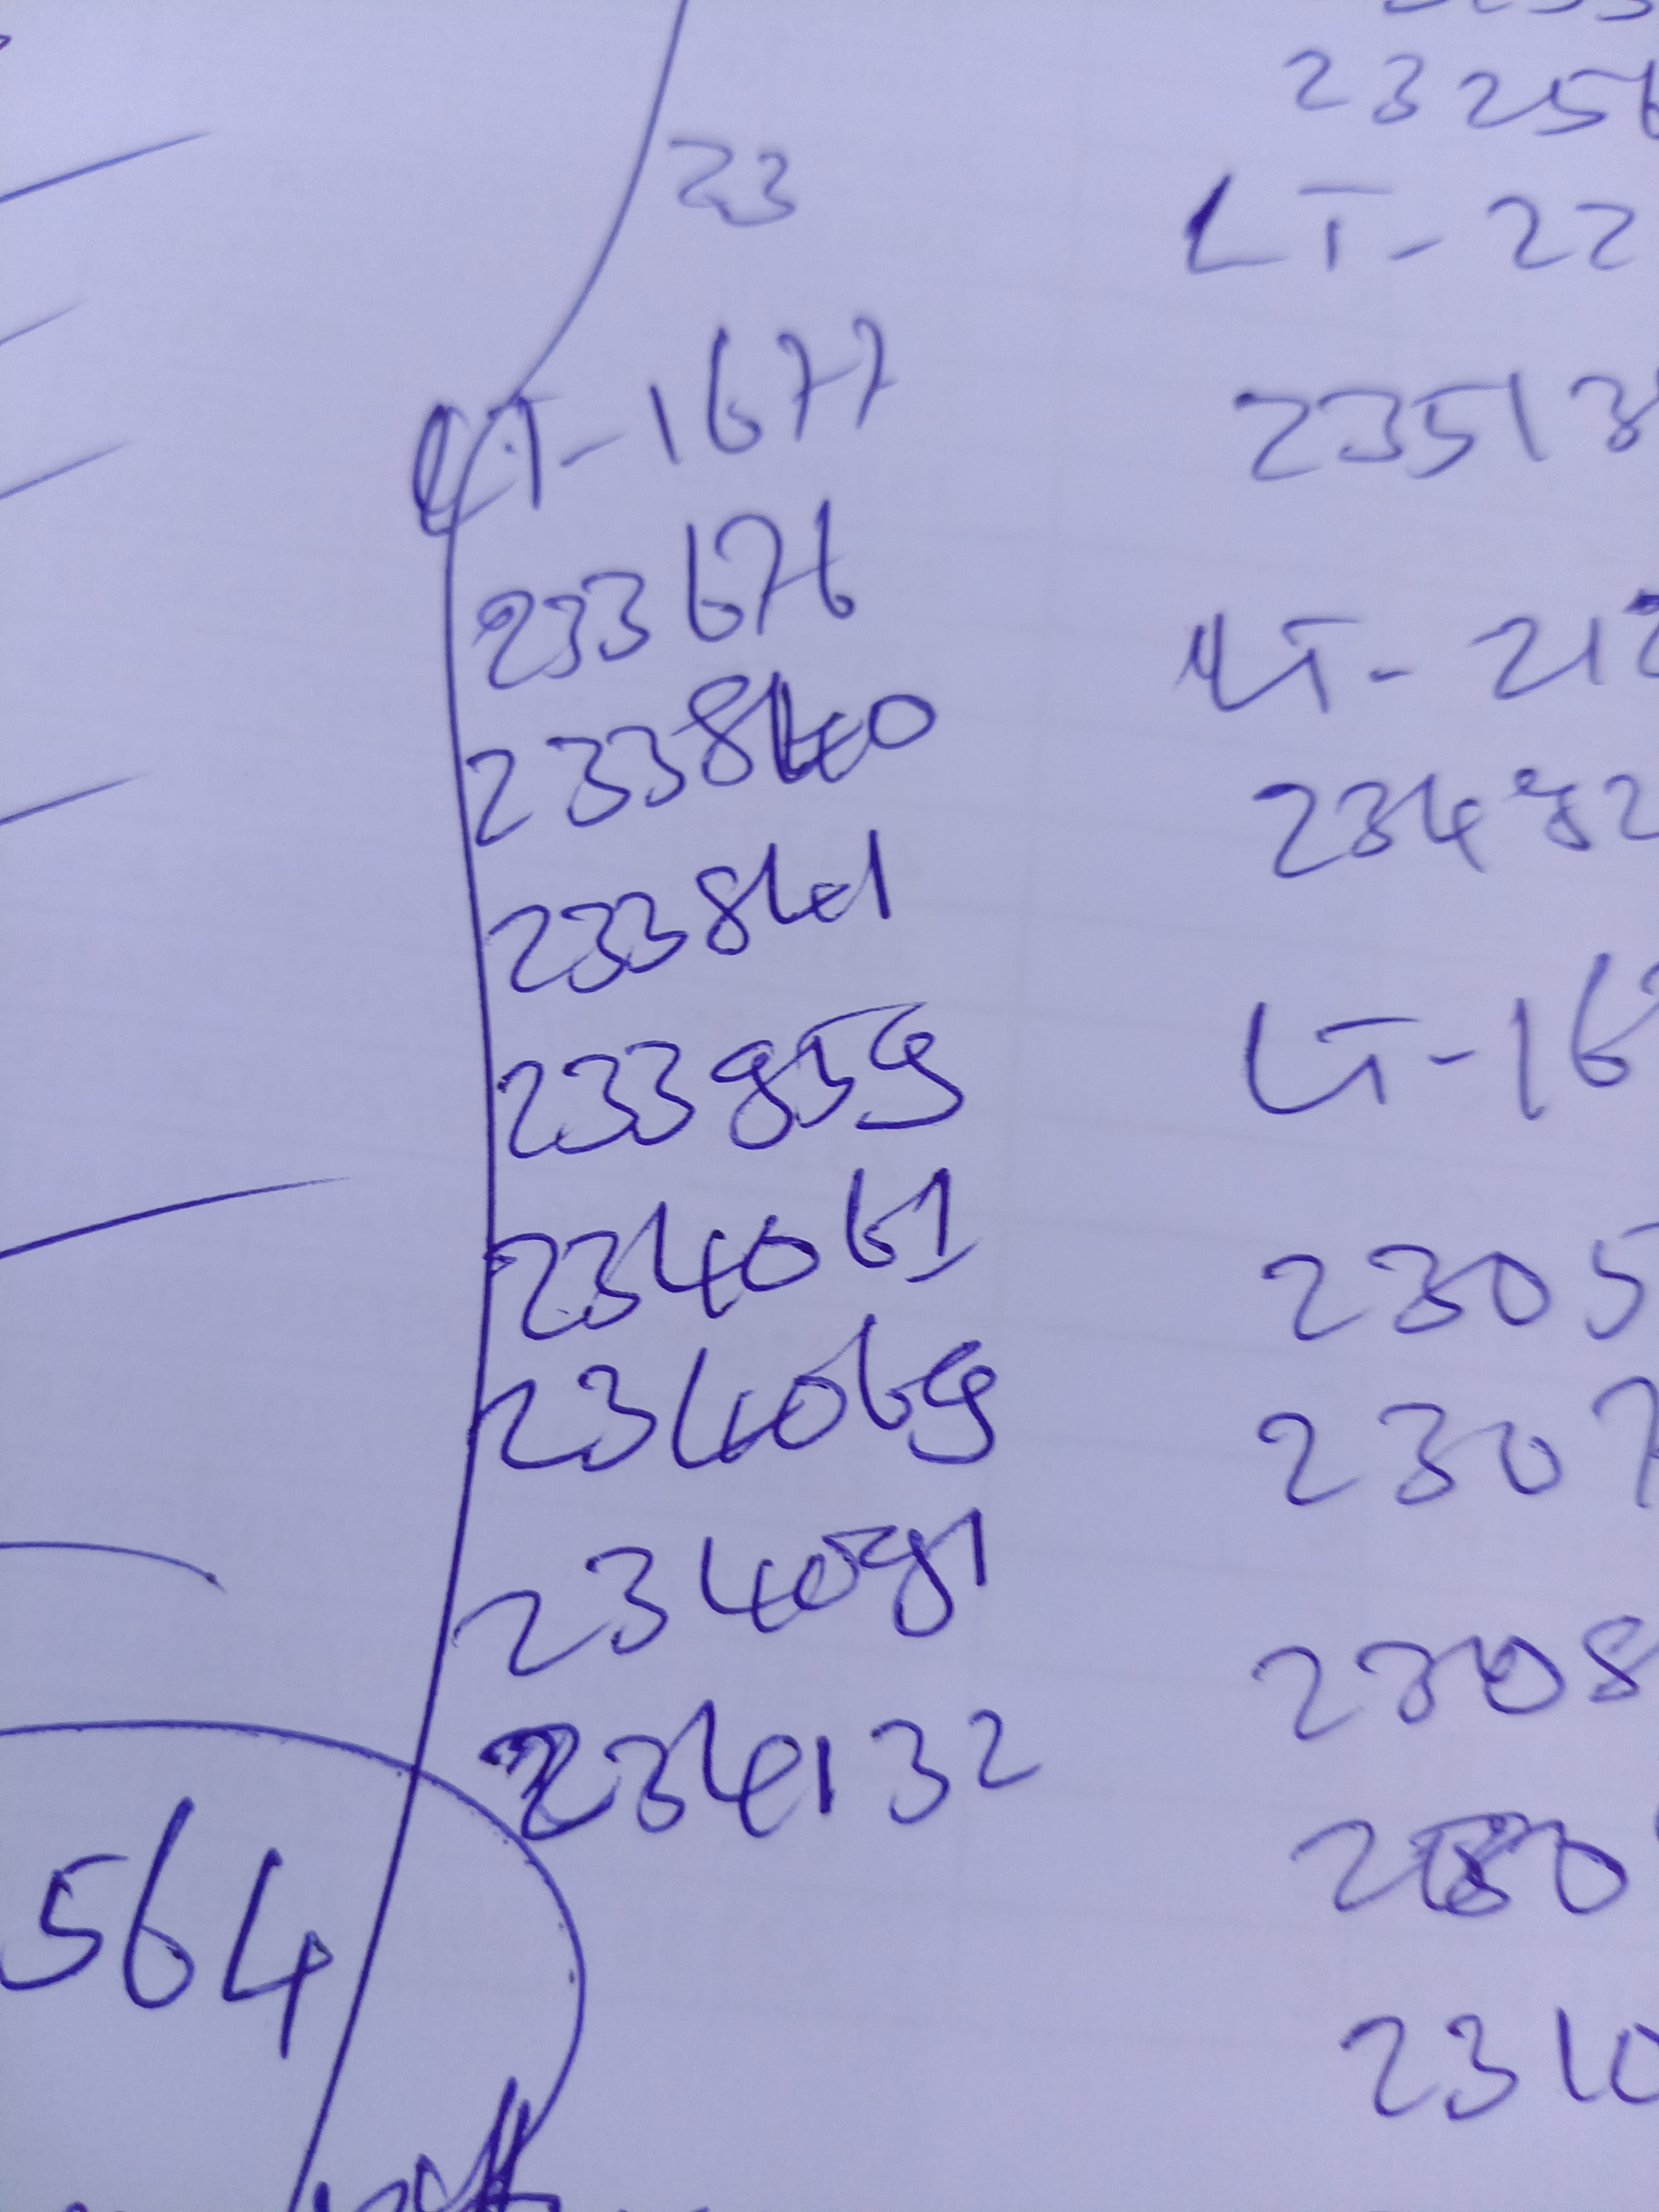 23
LT-1677
233676
233840
233841
233959
234061
234069
234091
234132
564
23256
LT-22
23513
LT-212
LT-16
2305
2307
2308
2310